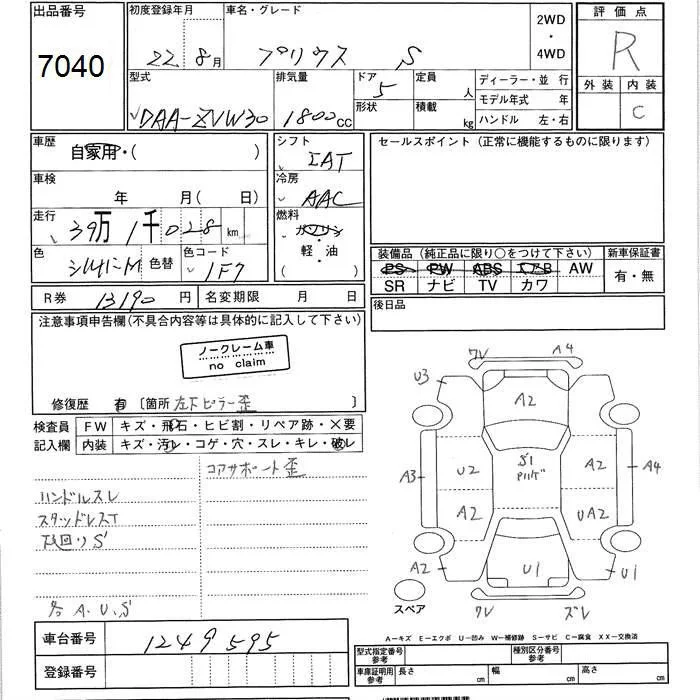 出品番号
7040
初度登録年月
22 8月
車名・グレード
プリウス S
2WD
・
4WD
評価点
R
外装 内装
C
型式
DAA-ZVW30
排気量
1800cc
ドア
5
形状
定員
人
積載
kg
ディーラー・並行
モデル年式 年
ハンドル 左・右
車歴
自家用・( )
車検
年 月( 日)
走行
39万1千028km
色
シルバーM
色替
色コード
1F7
シフト
IAT
冷房
AAC
燃料
ガソリン
軽・油
( )
セールスポイント (正常に機能するものに限ります)
装備品 (純正品に限り○をつけて下さい)
PS PW ABS エアB AW
SR ナビ TV カワ
新車保証書
有・無
R券 13190円
名変期限 月 日
後日品
注意事項申告欄(不具合内容等は具体的に記入して下さい)
ノークレーム車
no claim
修復歴 有 〔箇所 左下ピラー歪 〕
検査員
記入欄
FW キズ・飛石・ヒビ割・リペア跡・X要
内装 キズ・汚レ・コゲ・穴・スレ・キレ・破レ
コアサポート歪
ハンドルスレ
スタッドレスT
下廻りS
各A.U.S
ワレ A4
U3
A2
A3 U2 S1 A2 A4
A2 UA2
A2 U1 U1
ワレ ズレ
スペア
A−キズ E−エクボ U−凹み W−補修跡 S−サビ C−腐食 XX−交換済
車台番号 1249595
登録番号
型式指定番号
参考
種別区分番号
参考
車庫証明用
参考
長さ cm 幅 cm 高さ cm